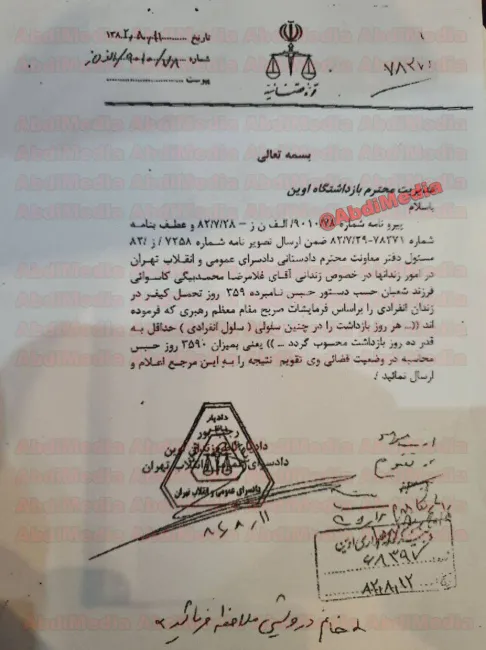 تاریخ ۱۳۸۲،۸،۱۱
شماره ۹۰۱۰/۷۸/الف ن ز
پیوست
۷۸۳۷۱
قوه قضائیه
بسمه تعالی
مدیریت محترم بازداشتگاه اوین
@AbdiMedia
باسلام
پیرو نامه شماره ۹۰۱۰/۷۸/الف ن ز – ۸۲/۷/۲۸ و عطف بنامه
شماره ۷۸۳۷۱-۸۲/۷/۲۹ ضمن ارسال تصویر نامه شماره ۷۲۵۸ / ز /۸۲
مسئول دفتر معاونت محترم دادستانی دادسرای عمومی و انقلاب تهران
در امور زندانها در خصوص زندانی آقای غلامرضا محمدبیگی کاسوائی
فرزند شعبان حسب دستور حبس نامبرده ۳۵۹ روز تحمل کیفر در
زندان انفرادی را براساس فرمایشات صریح مقام معظم رهبری که فرموده
اند ((... هر روز بازداشت را در چنین سلولی ( سلول انفرادی ) حداقل به
قدر ده روز بازداشت محسوب گردد ... )) یعنی بمیزان ۳۵۹۰ روز حبس
محاسبه در وضعیت قضائی وی تقویم نتیجه را به این مرجع اعلام و
ارسال نمائید ./
دادیار
دادسرای عمومی و انقلاب تهران
۸۲/۸/۱۱
۶۸۳۹۷
۸۲،۸،۱۲
«خانم درویشی ملاحظه فرمائید»
AbdiMedia